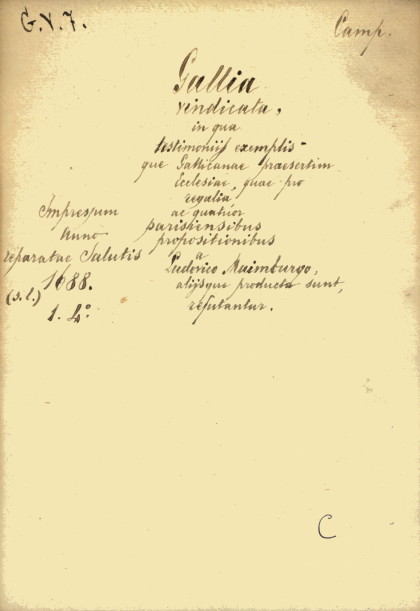 G.V.7.
Camp.
Gallia
vindicata,
in qua
testimonijs exemplis-
que Gallicanae praesertim
Ecclesiae, quae pro
regalia,
ac quatuor
parisiensibus
propositionibus
a
Ludovico Maimburgo,
alijsque producta sunt,
refutantur.
Impressum
Anno
reparatae Salutis
1688.
(s.l.)
1. 4°.
C